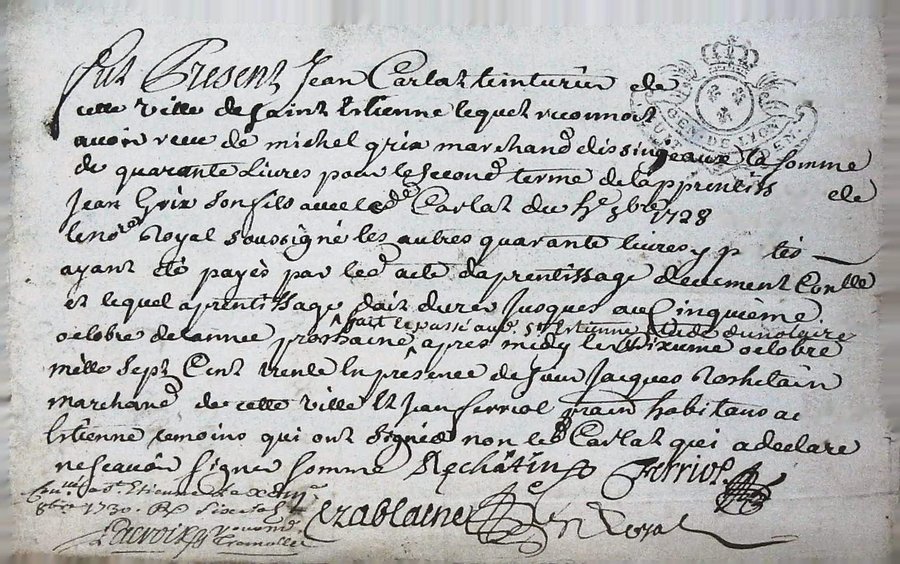 fut Present Jean Carlat teinturier de
cette ville de saint Etienne lequel reconnoit
avoir receu de michel grix marchand dissingeaux la somme
de quarante Livres pour le second terme de lapprentiss
Jean Grix son fils avec led Carlat du 9bre 1728
le nore Royal soussigné les autres quarante livres y p tés
ayant été payés par led acte daprentissage deuement Conllé
et lequel aprentissage doit durer Jusques au Cinquième
octobre de lannee prochaine
fait et passé aud. St Etienne Etude du notaire
apres midy le dixieme octobre
mille sept Cent trente En présence de sieur Jacques Rochetain
marchand de cette ville Et Jean ferriol habitans a
Etienne temoins qui ont signés non led Carlat qui a declaré
ne scavoir signer somme
Rechâtin ferriol
Ezablaine n Royal
Conllé a St. Etienne le
8bre 1730. R
Lacroix
GEN. DE LYON